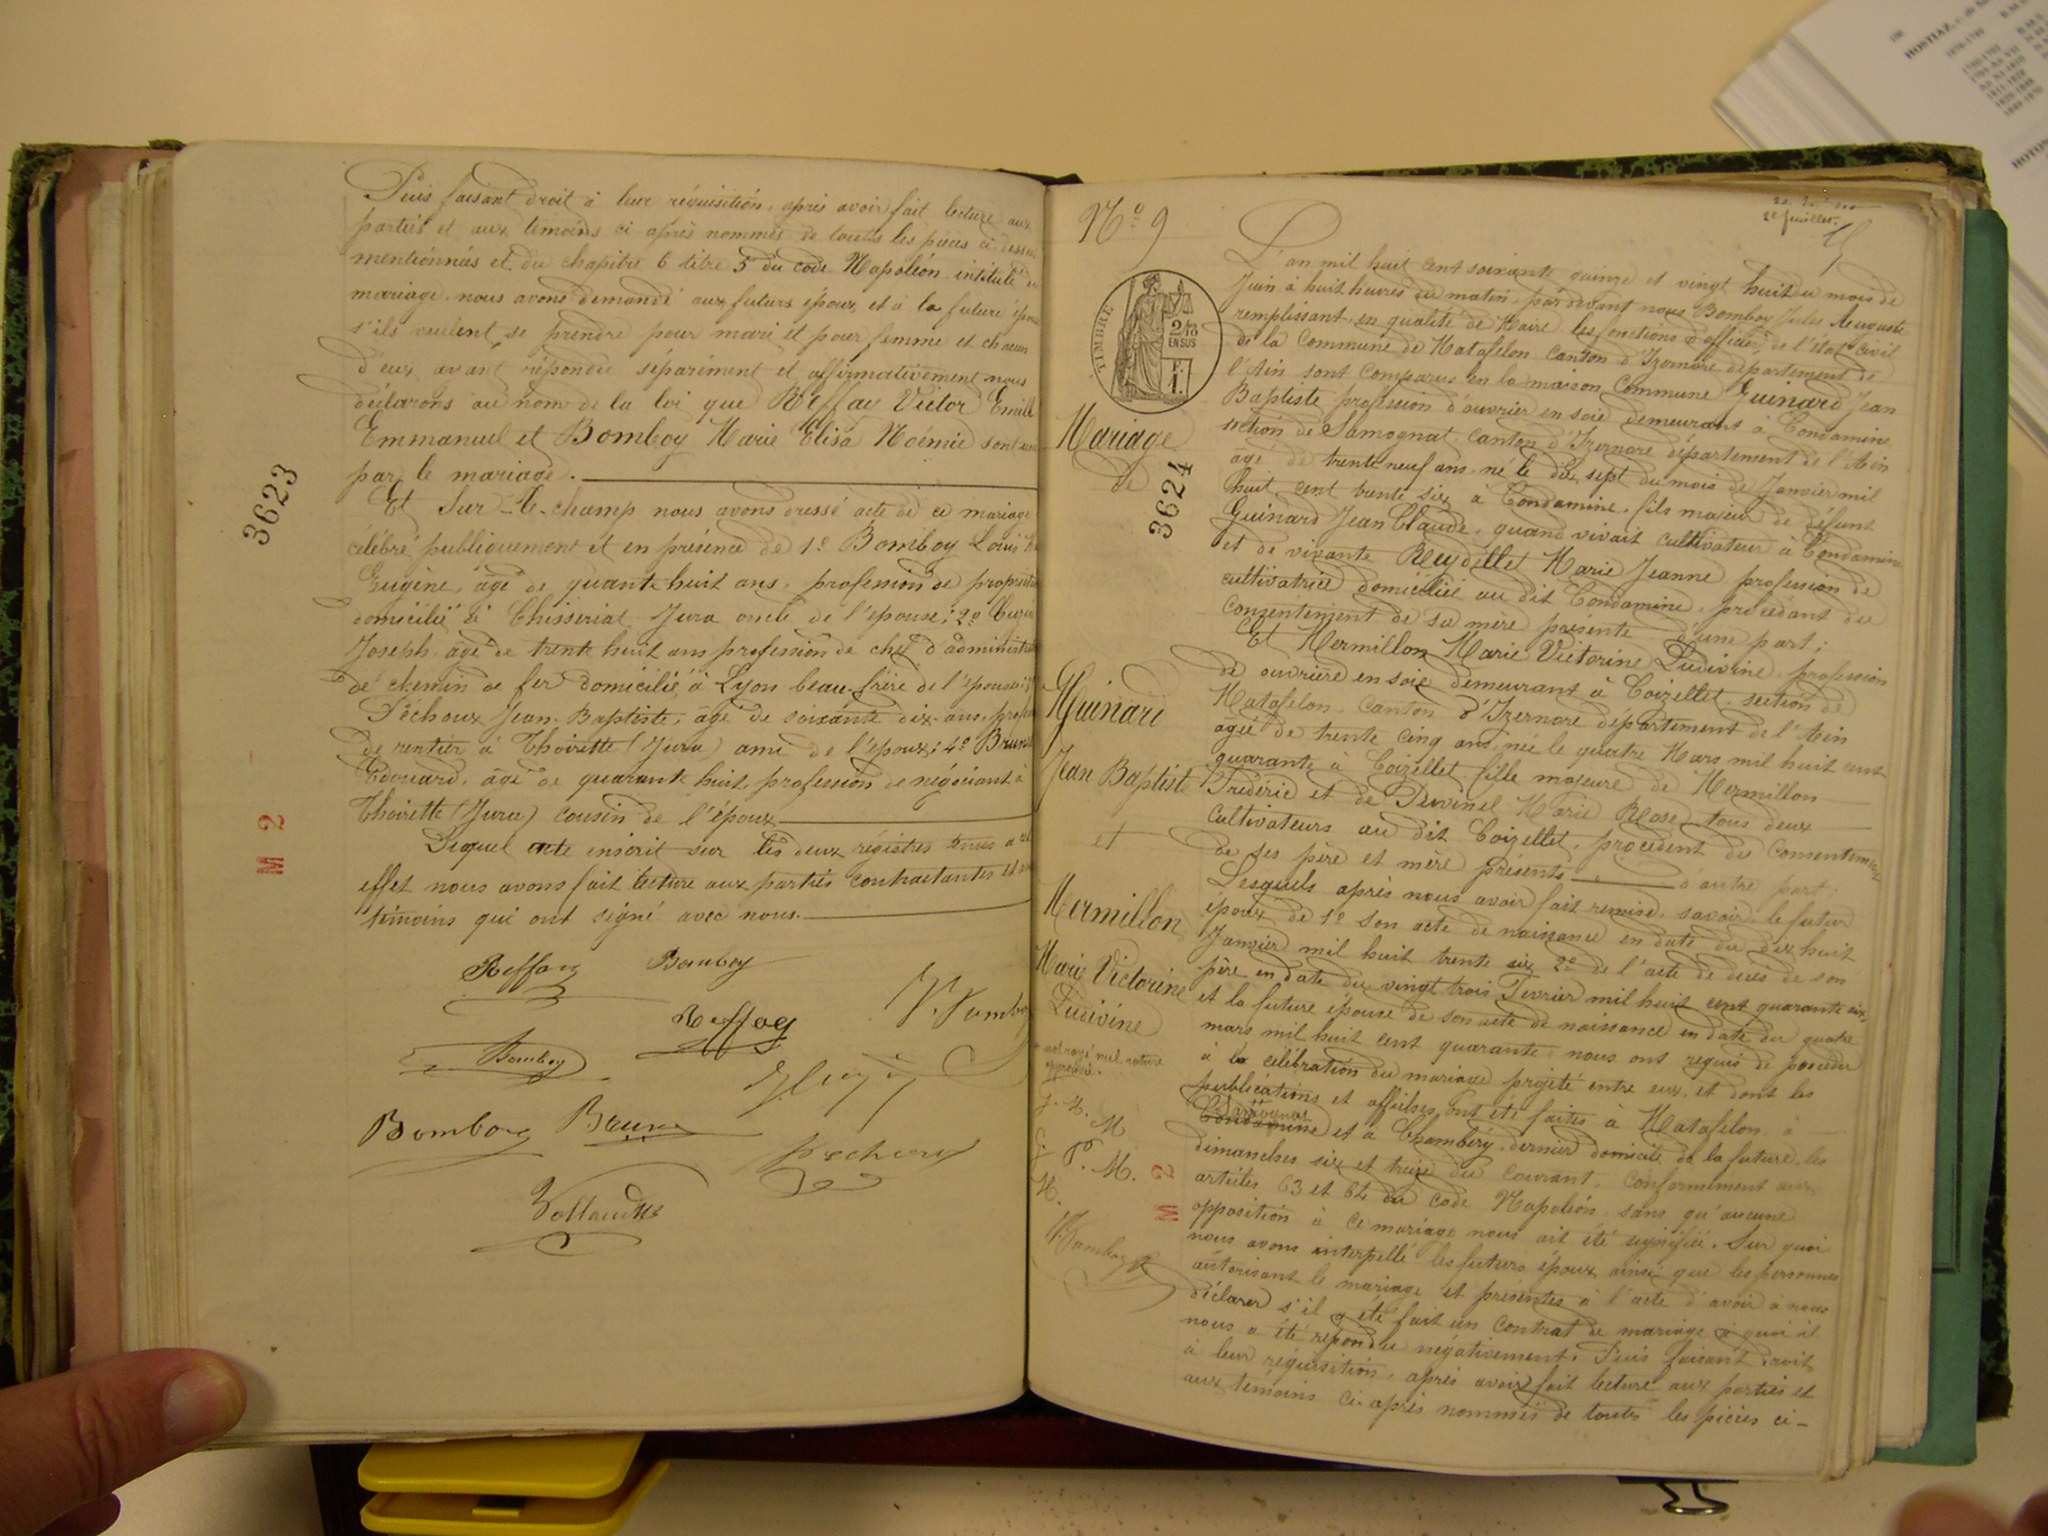 Puis faisant droit à leur réquisition, après avoir fait lecture aux
parties et aux témoins ci après nommés de toutes les pièces ci-dessus
mentionnées et du chapitre 6 titre 5 du code Napoléon intitulé du
mariage, nous avons demandé aux futurs époux et à la future épouse
s'ils veulent se prendre pour mari et pour femme et chacun
d'eux ayant répondu séparément et affirmativement nous
déclarons au nom de la loi que Reffay Victor Emile
Emmanuel et Bomboy Marie Elisa Noémie sont unis
par le mariage.
Et Sur-le-champ nous avons dressé acte de ce mariage
célébré publiquement et en présence de 1º Bomboy Louis
Eugène, âgé de quarante huit ans, profession de propriétaire
domicilié à Thisseriat Jura oncle de l'épouse; 2º
Joseph, âgé de trente huit ans profession de chef d'administration
de chemin de fer domicilié à Lyon beau-frère de l'épouse;
Péchoux Jean-Baptiste, âgé de soixante dix ans, profession
de rentier à Thoirette (Jura) ami de l'époux; 4º Brunet
Edouard, âgé de quarante huit, profession de négociant à
Thoirette (Jura) cousin de l'époux
Lequel acte inscrit sur les deux régistres tenus à cet
effet nous avons fait lecture aux parties contractantes et aux
témoins qui ont signé avec nous.
Reffay Bomboy
Reffay
Bomboy
Bomboy Brunet
Pechoux
3623
M 2
Nº 9
2e feuillet
TIMBRE
2/10 EN SUS
F. 1.
Mariage
de
3624
Guinard
Jean Baptiste
et
Mermillon
Marie Victorine
Ludivine
mot rayé nul
approuvé
J. B.
M
P. M.
M.
Bomboy
M 2
L'an mil huit cent soixante quinze et vingt huit du mois de
Juin à huit heures du matin, pardevant nous Bomboy Jules Auguste
remplissant en qualité de Maire les fonctions d'officier de l'état civil
de la Commune de Matafelon canton d'Izernore département de
l'Ain sont comparus en la maison Commune Guinard Jean
Baptiste profession d'ouvrier en soie demeurant à Condamine
section de Samognat canton d'Izernore département de l'Ain
âgé de trente neuf ans, né le dix sept du mois de Janvier mil
huit cent trente six à Condamine, fils majeur de défunt
Guinard Jean Claude, quand vivait cultivateur à Condamine
et de vivante Reydellet Marie Jeanne profession de
cultivatrice domiciliée au dit Condamine, procédant du
consentement de sa mère présente d'une part;
Et Mermillon Marie Victorine Ludivine, profession
de ouvrière en soie demeurant à Coizellet, section de
Matafelon, canton d'Izernore département de l'Ain
agée de trente cinq ans, née le quatre Mars mil huit cent
quarante à Coizellet fille majeure de Mermillon
Frédéric et de Marie Rose tous deux
cultivateurs au dit Coizellet, procédent du consentement
de ses père et mère présents d'autre part;
Lesquels après nous avoir fait remise, savoir, le futur
époux de 1º Son acte de naissance en date du dix huit
Janvier mil huit trente six 2º de l'acte de décès de son
père en date du vingt trois Fevrier mil huit cent quarante six,
et la future épouse de son acte de naissance en date du quatre
mars mil huit cent quarante nous ont requis de procéder
à la célébration du mariage projeté entre eux, et dont les
publications et affiches ont été faites à Matafelon, à
Samognat
Condamine et à Chambéry, dernier domicile de la future, les
dimanches six et treize du courant, conformément aux
articles 63 et 64 du code Napoléon sans qu'aucune
opposition à ce mariage nous ait été signifiée. Sur quoi
nous avons interpellé les futurs époux ainsi que les personnes
autorisant le mariage et présentes à l'acte d'avoir à nous
déclarer s'il a été fait un contrat de mariage à quoi il
nous a été répondu négativement. Puis faisant droit
à leur réquisition, après avoir fait lecture aux parties et
aux témoins ci-après nommés de toutes les pièces ci-